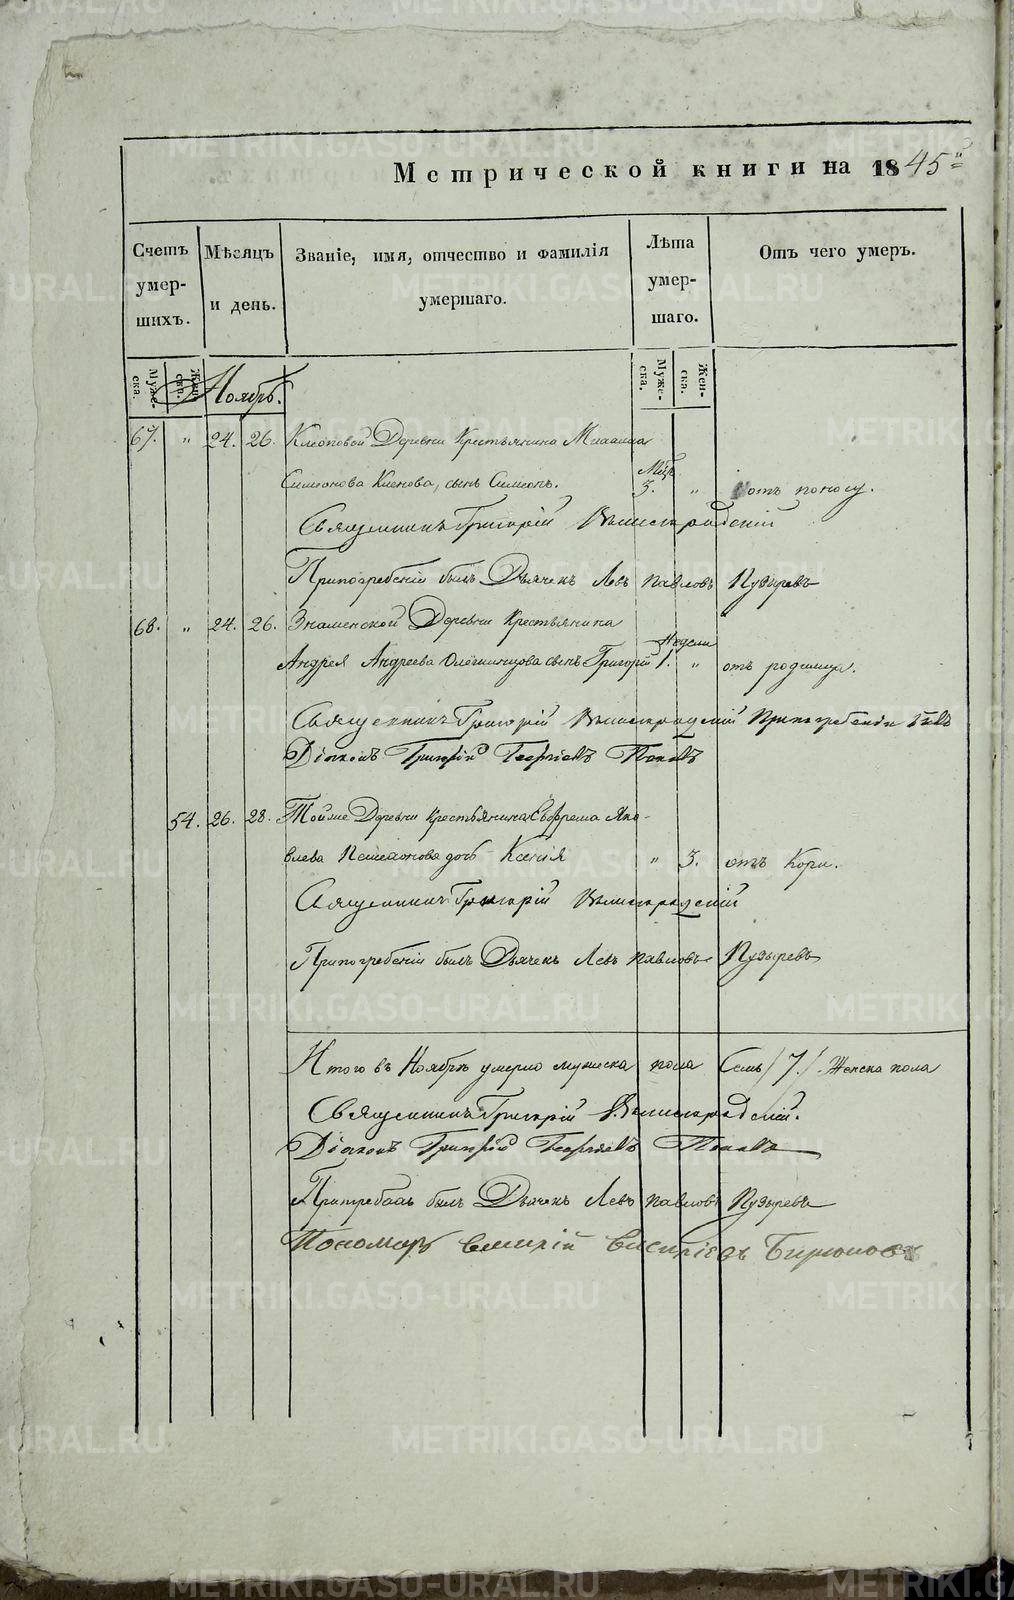 Метрической книги на 1845й
Счетъ умер-шихъ.
Мѣсяцъ и день.
Званіе, имя, отчество и фамилія умершаго.
Лѣта умер-шаго.
Отъ чего умеръ.
Муже-ска.
Жен-ска.
Ноябрь.
Муже-ска.
Жен-ска.
67. " 24. 26. Деревни Крестьянина Михаила
Симеонова сынъ Симеонъ. Мѣс. 3. " отъ поносу.
Священникъ Григорій
Припогребеніи былъ Дьячекъ Левъ Павловъ Пузыревъ
68. " 24. 26. Знаменской Деревни Крестьянина
Андрея Андреева сынъ Григорій Недели 1. " отъ родимца.
Священникъ Григорій Припогребеніи былъ
Діаконъ Григорій Георгіевъ Поповъ
54. 26. 28. Деревни Крестьянина Евфрема Яко-
влева дочь Ксенія " 3. отъ Кори.
Священникъ Григорій
Припогребеніи былъ Дьячекъ Левъ Павловъ Пузыревъ
Итого въ Ноябрѣ умерло мужеска пола Семь /7./ Женска пола
Священникъ Григорій
Діаконъ Григорій Георгіевъ Поповъ
былъ Дьячекъ Левъ Павловъ Пузыревъ
Пономарь Василій Васильевъ Бирюковъ
METRIKI.GASO-URAL.RU